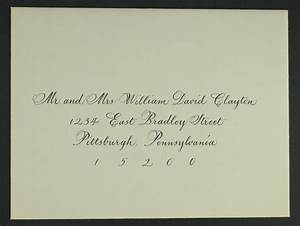 Mr and Mrs William David Clayton
1234 East Bradley Street
Pittsburgh, Pennsylvania
1 5 2 0 0